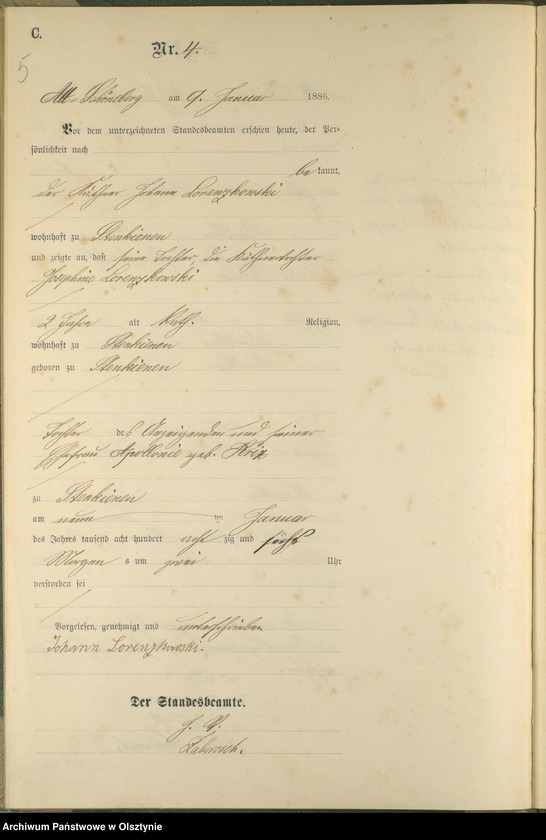 C.
Nr. 4.
5
Alt-Schöneberg am 9. Januar 1886.
Vor dem unterzeichneten Standesbeamten erschien heute, der Per-
sönlichkeit nach
bekannt,
der Käthner Johann Lorenzkowski
wohnhaft zu Stenkienen
und zeigte an, daß seine Tochter, die Käthnertochter
Josephine Lorenzkowski
2 Jahre alt kath. Religion,
wohnhaft zu Stenkienen
geboren zu Stenkienen
Tochter des Anzeigenden und seiner
Ehefrau Apollonie geb. Krix
zu Stenkienen
am neunten Januar
des Jahres tausend acht hundert achtzig und sechs
Morgens um zwei Uhr
verstorben sei
Vorgelesen, genehmigt und unterschrieben
Johann Lorenzkowski.
Der Standesbeamte.
J. V.
Archiwum Państwowe w Olsztynie